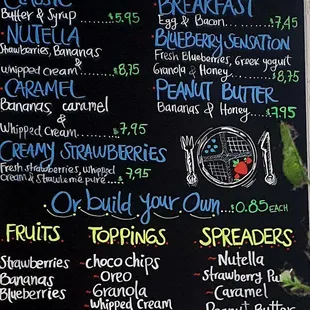 CLASSIC
Butter & Syrup ....$5.95
• NUTELLA
Strawberries, Bananas
&
whipped cream .......$8,75
• CARAMEL
Bananas, caramel
&
Whipped Cream ..........$7,95
CREAMY STRAWBERRIES
Fresh strawberries, whipped
cream &
pure ..... 7,95
BREAKFAST
Egg & Bacon.......$7,45
• BLUEBERRY SENSATION
Fresh Blueberries, Greek yogurt
Granola & Honey.......$8,75
• PEANUT BUTTER
Bananas & Honey.....$7.95
Or build your Own...$0.85 EACH
FRUITS
Strawberries
Bananas
Blueberries
TOPPINGS
~ choco chips
~ Oreo
~ Granola
~ Whipped Cream
SPREADERS
~ Nutella
~ Strawberry
~ Caramel
~ Peanut